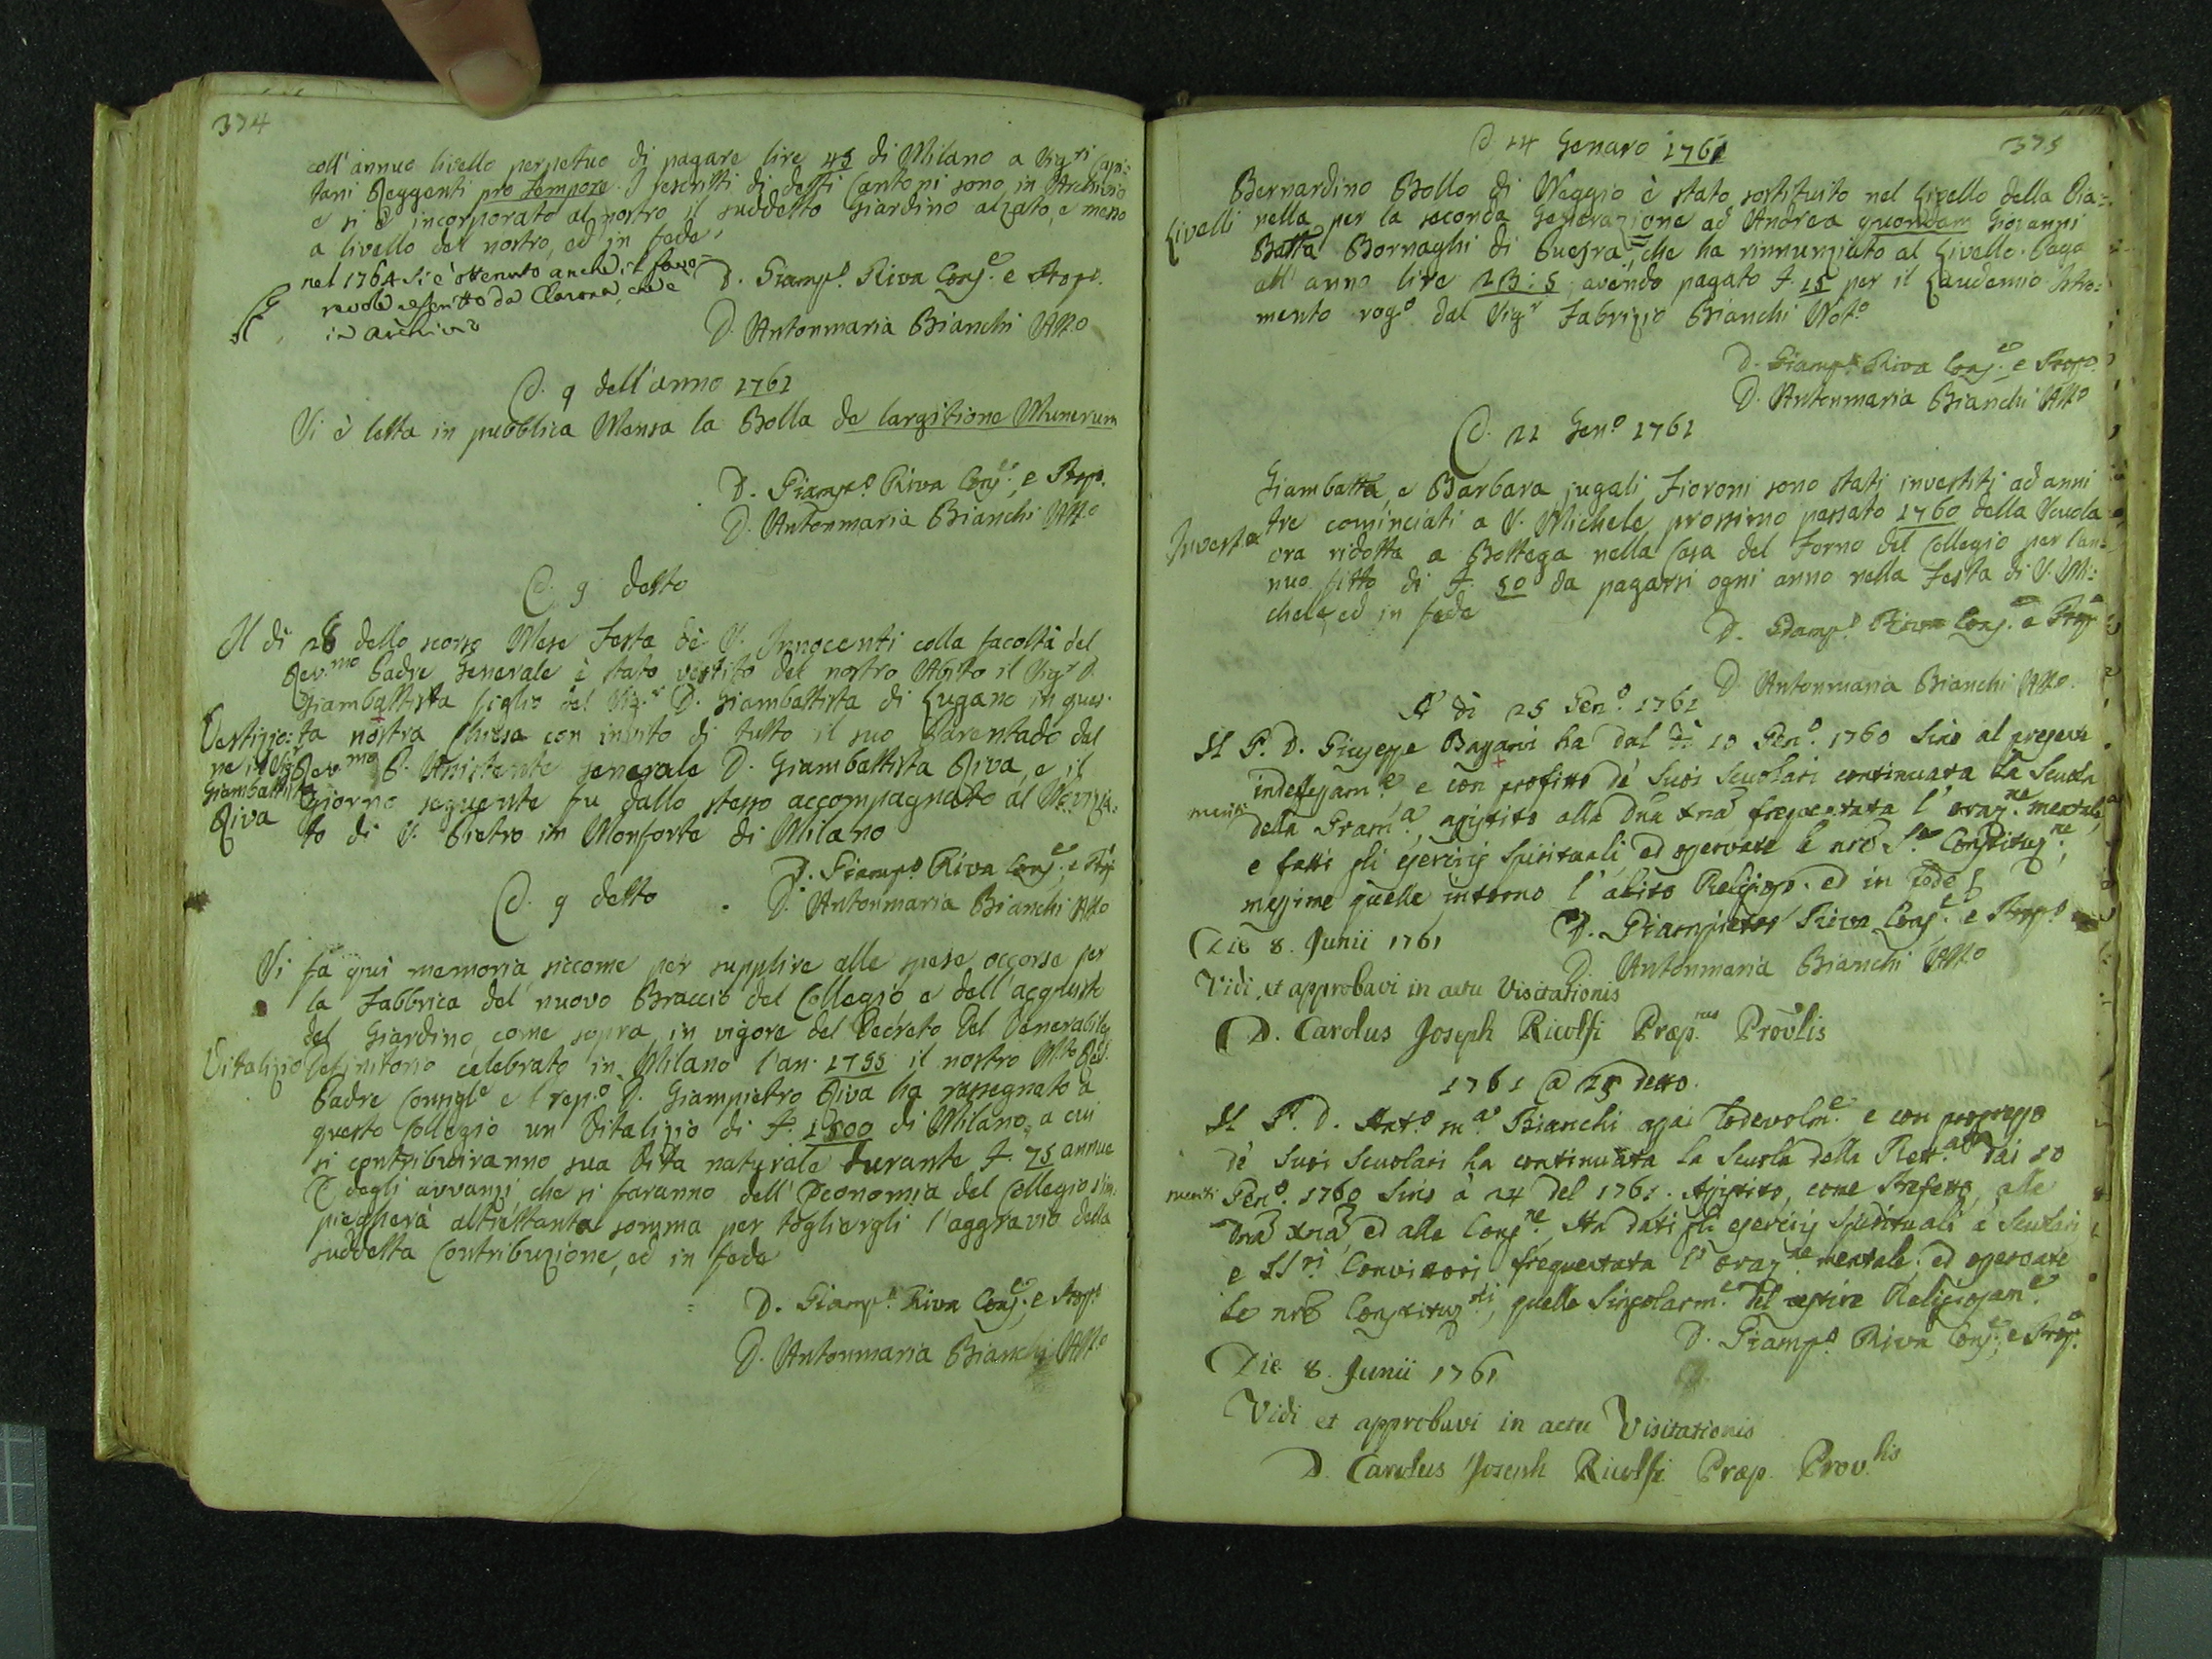 374
coll' annuo livello perpetuo di pagare lire 45 di Milano a Sig.ri Capi-
tani Reggenti pro tempore. I rescritti di detti Cantoni sono in Archivio
e si è incorporato al nostro il suddetto Giardino alzato, e messo
a livello del nostro, ed in fede
nel 1764 si è ottenuto anche il favo-
revole rescritto da Clarona, che è
in archivio
D. Giamp.o Riva Cons.e e Prop.o
D. Antonmaria Bianchi Att.o
A. 9 dell' anno 1761
Si è letta in pubblica Mensa la Bolla de largitione Munerum
D. Giamp.o Riva Cons.e e Prop.o
D. Antonmaria Bianchi Att.o
A. 9 detto
Il dì 28 dello scorso Mese Festa de S. Innocenti colla facoltà del
Rev.mo Padre Generale è stato vestito del nostro Abito il Sig.r D.
Giambattista figlio del Sig.r D. Giambattista di Lugano in ques-
Vestizio: ta nostra Chiesa con invito di tutto il suo Parentado dal
ne il Sig.r Rev.mo P. Assistente generale D. Giambattista Riva, e il
Giambattista giorno seguente fu dallo stesso accompagnato al Novizia-
Riva to di S. Pietro in Monforte di Milano
D. Giamp.o Riva Cons.e e Prop.
A. 9 detto D. Antonmaria Bianchi Att.o
Si fa qui memoria, siccome per supplire alle spese occorse per
la Fabbrica del nuovo Braccio del Collegio e dell' acquisto
del Giardino, come sopra, in vigore del Decreto del Venerabile
Vitalizio Definitorio celebrato in Milano l'an. 1755 il nostro M.to Rev.
Padre Consigl.e e Prep.o D. Giampietro Riva ha rassegnato a
questo Collegio un Vitalizio di £. 1500 di Milano, a cui
si contribuiranno sua Vita naturale durante £. 75 annue
E degli avvanzi che si faranno dell' Economia del Collegio s'im-
piegherà altrettanta somma per togliergli l'aggravio della
suddetta Contribuzione, ed in fede
D. Giamp.o Riva Cons.e e Prop.o
D. Antonmaria Bianchi Att.o
375
A 14 Genaro 1761
Bernardino Bollo di Neggio è stato sostituito nel Livello della Pia-
Livelli nella per la seconda Generazione ad Andrea quondam Giovanni
Batta Bornaghi di che ha rinnunziato al Livello. Paga
all' anno lire 23:5, avendo pagato £. 15 per il Laudemio. Istro-
mento rog.o dal Sig.r Fabrizio Bianchi Not.o
D. Giamp.o Riva Cons.e e Prop.o
D. Antonmaria Bianchi Att.o
A. 21 Gen.o 1761
Giambatta, e Barbara jugali Fioroni sono stati investiti ad anni
Invest.a tre cominciati a S. Michele prossimo passato 1760 della Scuola
ora ridotta a Bottega nella Casa del Forno del Collegio per l'an-
nuo fitto di £. 50 da pagarsi ogni anno nella Festa di S. Mi-
chele, ed in fede
D. Giamp.o Riva Cons.e e Prop.o
D. Antonmaria Bianchi Att.o
A dì 25 Gen.o 1761
Il P. D. Giuseppe Bagarri ha dal dì 10 Gen.o 1760 sino al presente
indefessam.e e con profitto de' suoi Scuolari continuata la Scuola
meriti della Gram.a, assistito alla Dna Xna frequentata l'oraz.ne mentale,
e fatti gli esercizj Spirituali, ed osservate le nre S.e Constituz.ni,
massime quelle intorno l'abito Religioso. ed in fede
D. Giampietro Riva Cons.e e Prop.o
Die 8. Junii 1761
D. Antonmaria Bianchi Att.o
Vidi, et approbavi in actu Visitationis
D. Carolus Joseph Ricolfi Præp.tus Prov̄lis
1761 A 25 detto.
Il P. D. Ant.o M.a Bianchi assai lodevolm.e e con progresso
de' suoi Scuolari ha continuata la Scuola della Rett.a dai 10
meriti Gen.o 1760 sino à 24 del 1761. Assistito, come Prefetto, alla
Dna Xna, ed alla Cong.ne. Ha dati gli esercizj Spirituali a' Scuolari
e SS.ri Convittori, frequentata l'oraz.ne mentale, ed osservate
le nre Constituz.ni, quelle singolarm.e del vestire Religiosam.e
D. Giamp.o Riva Cons.e e Prop.o
Die 8. Junii 1761
Vidi et approbavi in actu Visitationis
D. Carolus Joseph Ricolfi Præp. Prov.lis